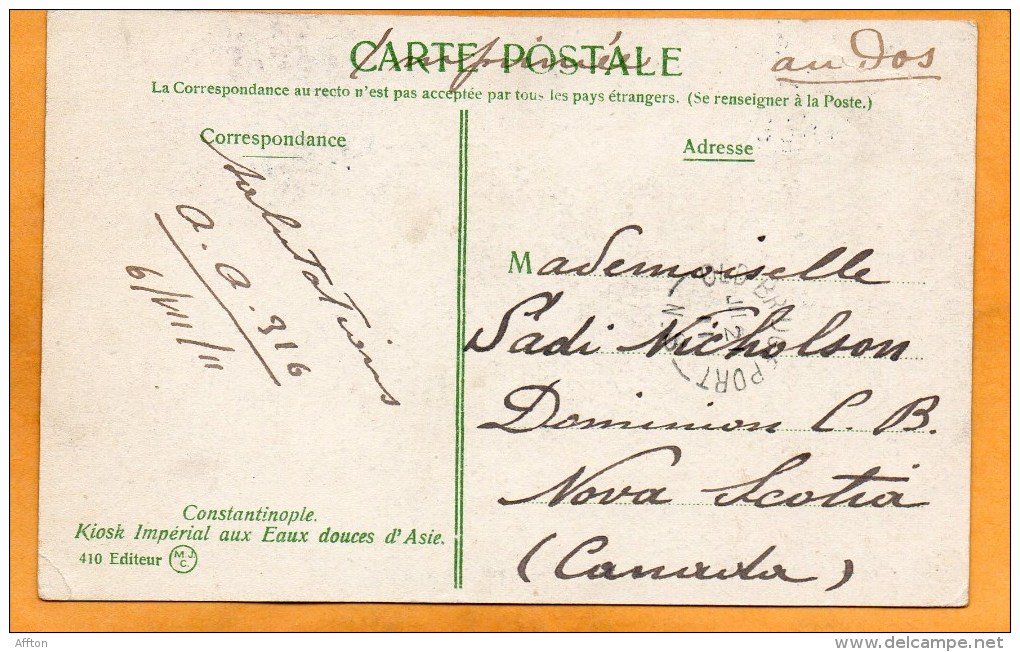 CARTE POSTALE
Imprimée au Dos
La Correspondance au recto n'est pas acceptée par tous les pays étrangers. (Se renseigner à la Poste.)
Correspondance
Salutations
A. A. 316
6/VII/11
Constantinople.
Kiosk Impérial aux Eaux douces d'Asie.
410 Editeur M.J.C.
Adresse
Mademoiselle
Sadi Nicholson
Dominion C. B.
Nova Scotia
(Canada)
OLD BRIDGEPORT
N.S
Affton
www.delcampe.net